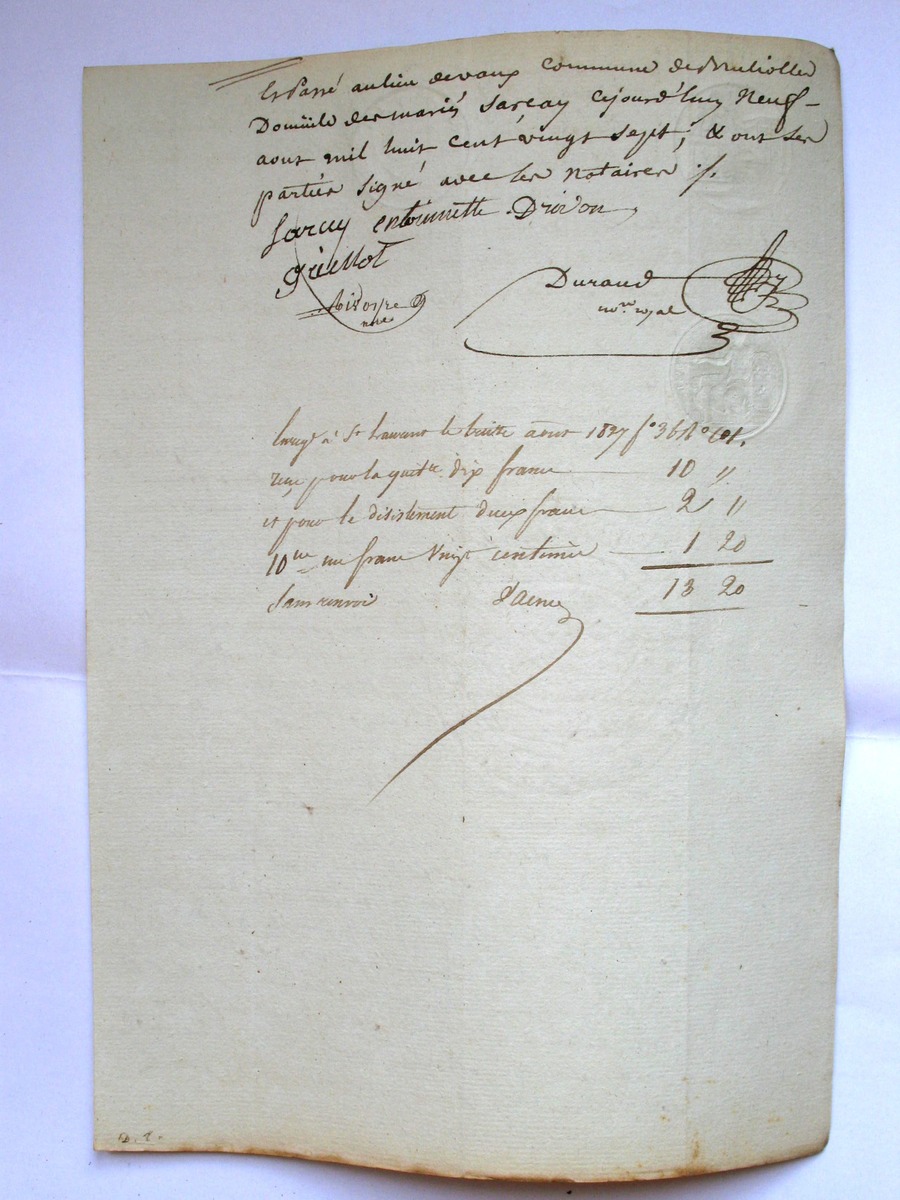 et Passé au lieu de vaux commune de Brulioller
Domicile des mariés Sarcay cejourd'huy Neuf
aout mil huit cent vingt sept, & ont ses
parties signé avec les notaires ./.
Sarcay entoinette Drivon
guillot
Durand
nore royal
nore
Enregé à St Laurent le huit août 1827 fo 36 Ro
reçu pour la quitce dix francs 10 "
et pour le désistement deux francs 2 "
10me un franc vingt centimes 1 20
Sans renvoi 13 20
D. 2.